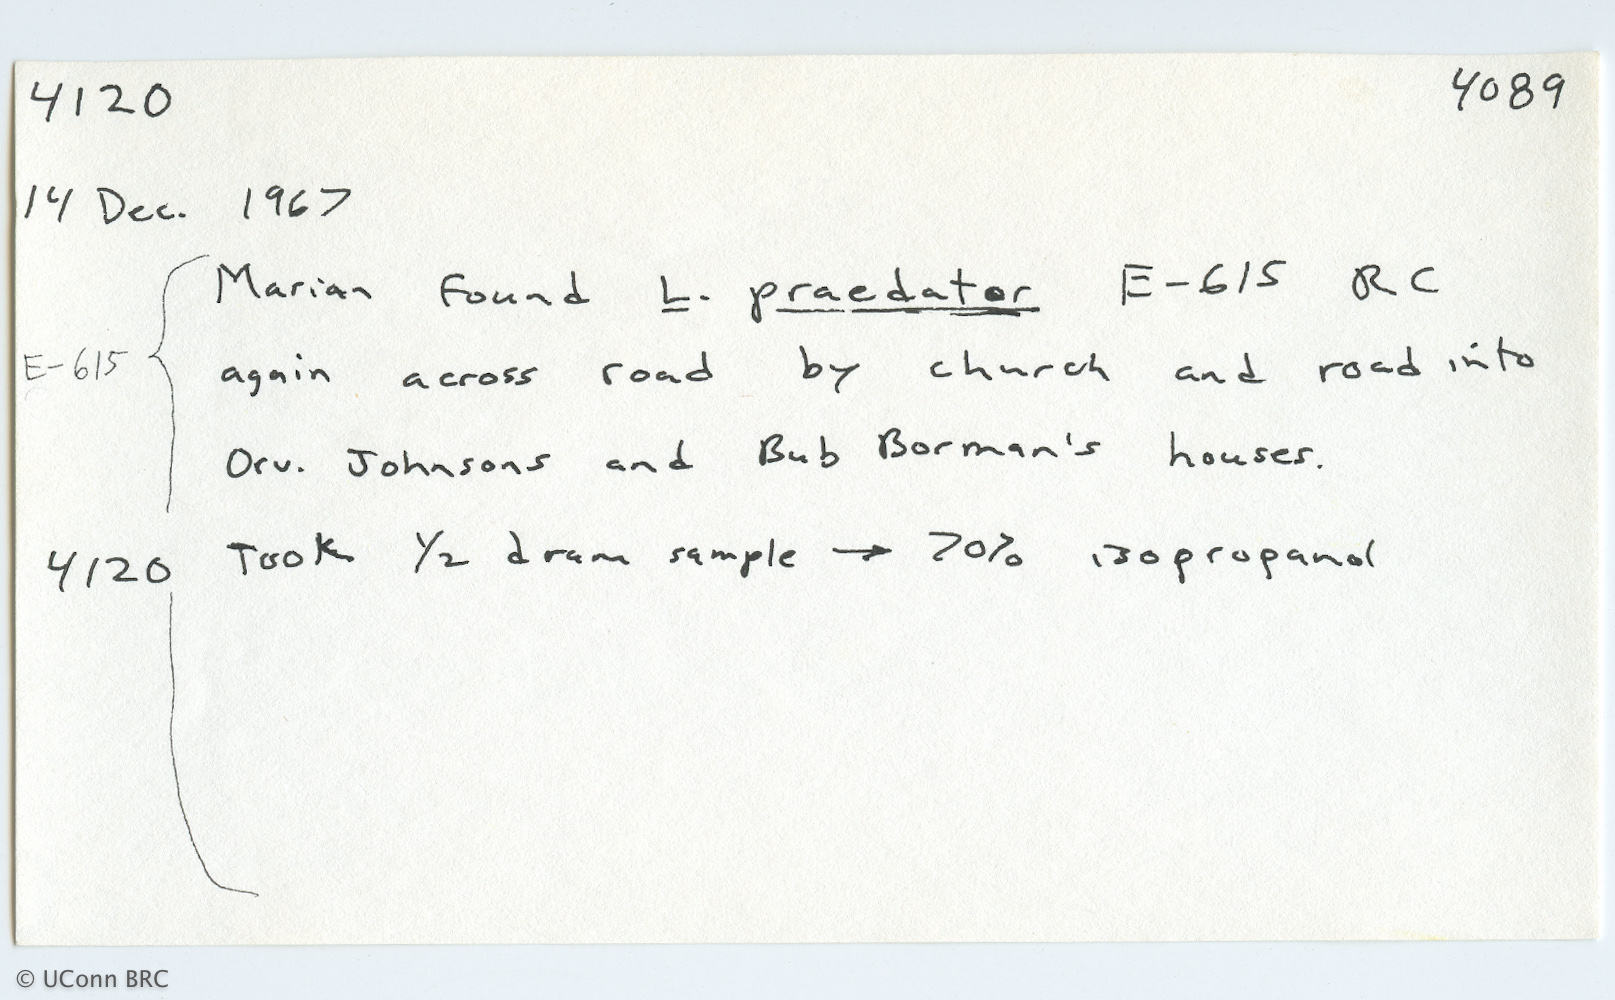 4120 4089
14 Dec. 1967
Marian found L. praedator E-615 RC
E-615 again across road by church and road into
Orv. Johnsons and Bub Borman's houses.
4120 Took 1/2 dram sample → 70% isopropanol
© UConn BRC